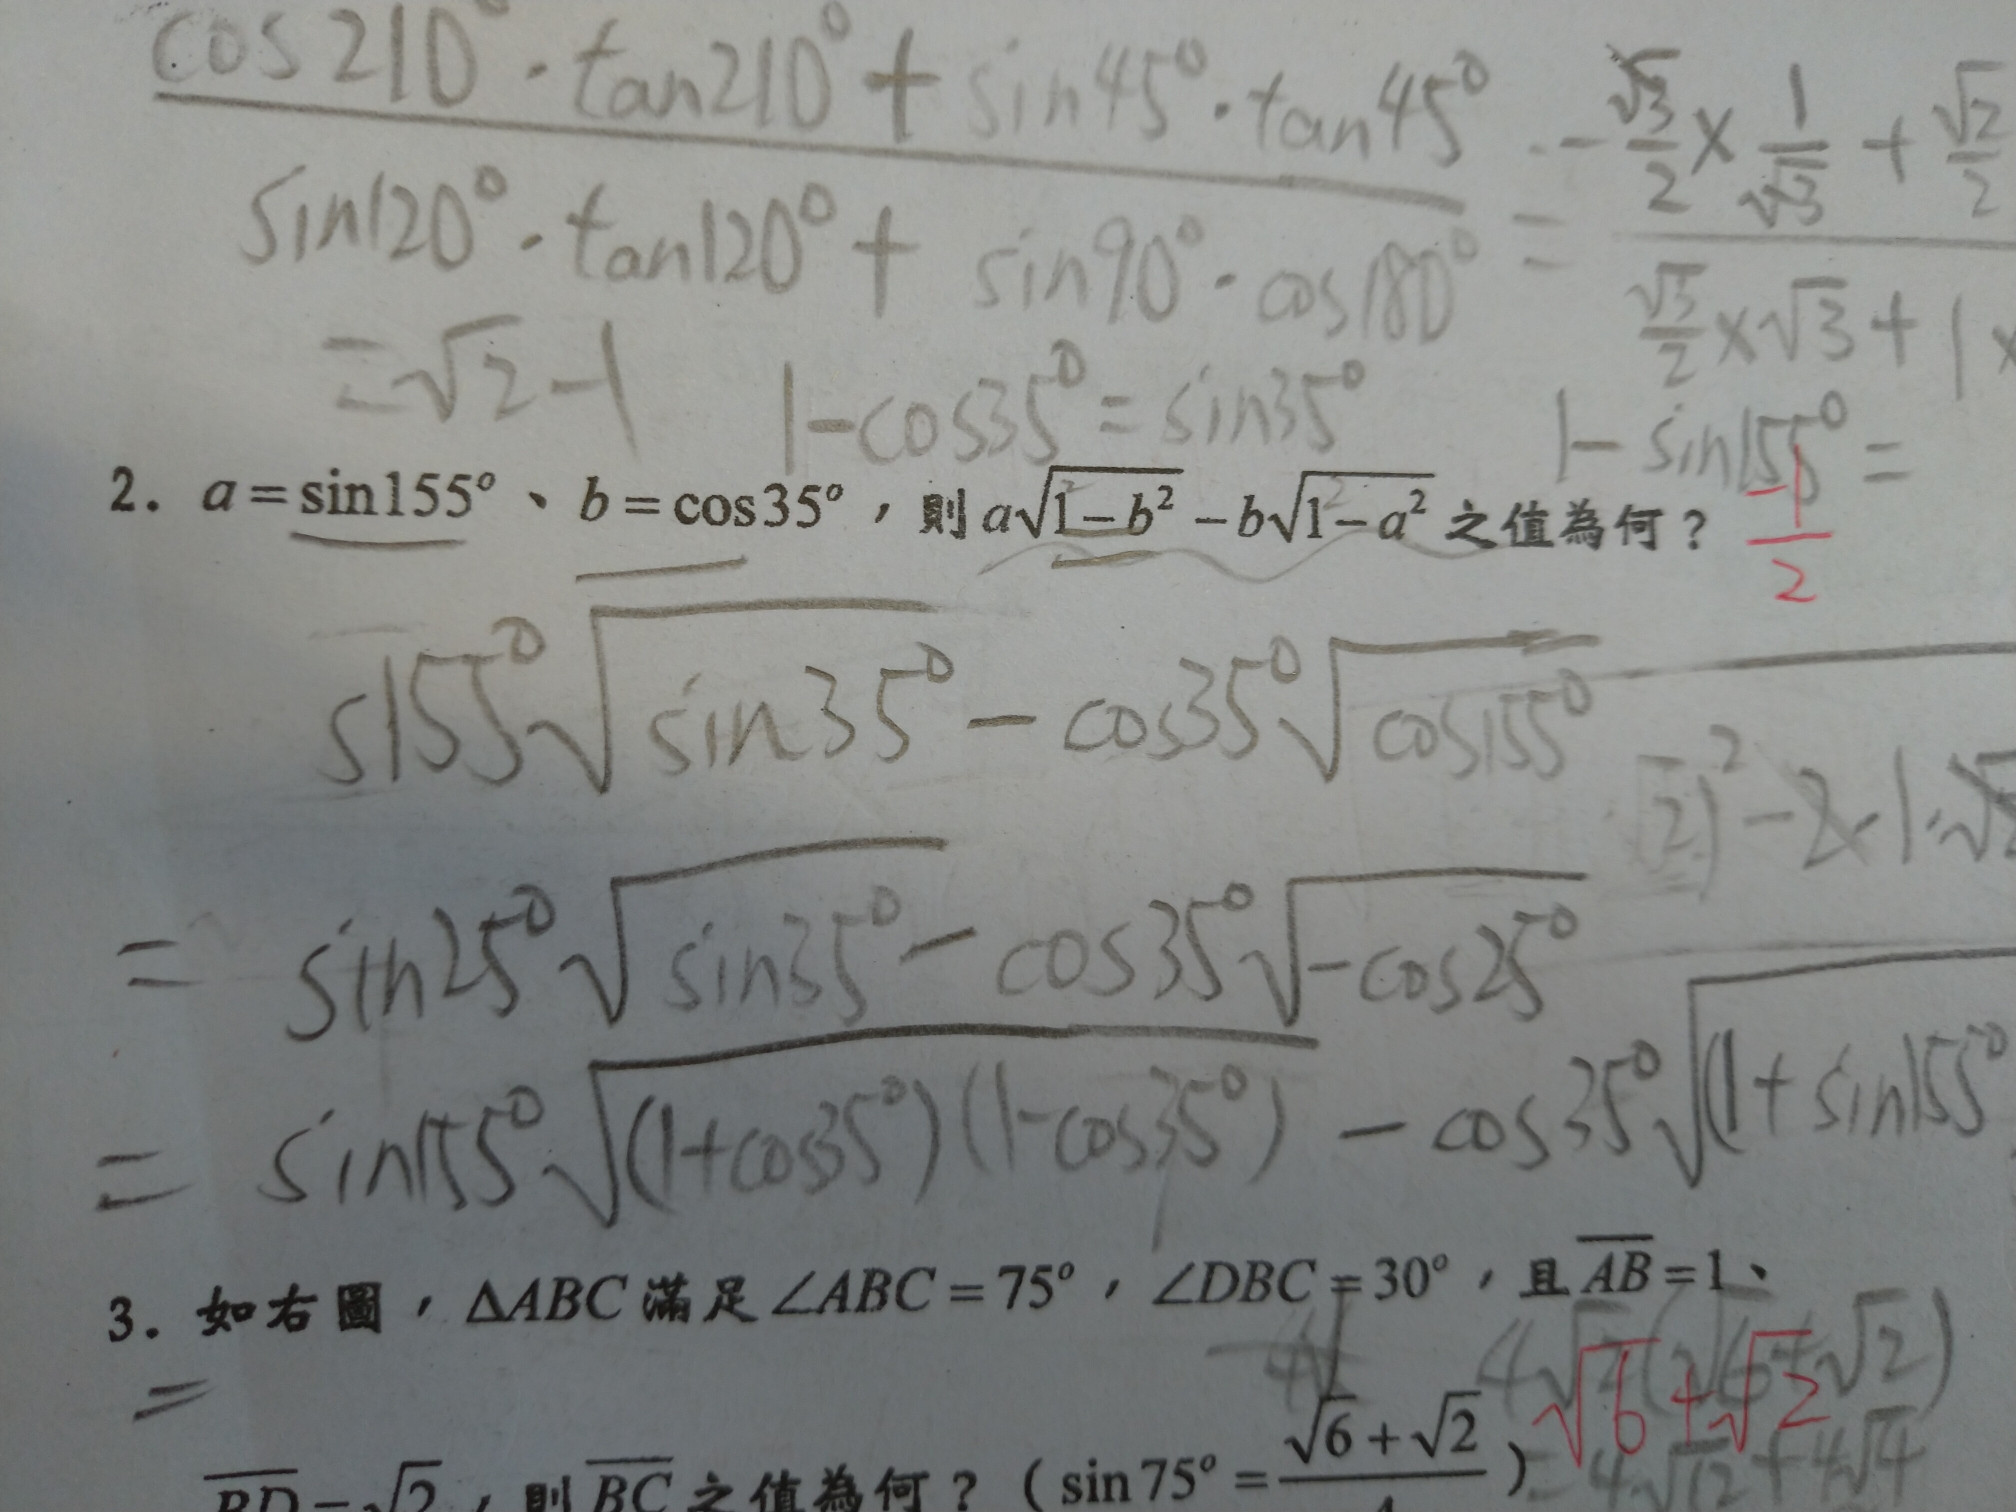 cos210°·tan210°+sin45°·tan45°
sin120°·tan120°+sin90°·cos180°
= -√3/2×1/√3+√2/2
√3/2×√3+1×
=√2-1
1-cos35°=sin35°
1-sin155°=
2. a=sin155°、b=cos35°,則a√(1-b²)-b√(1-a²)之值為何?
-1/2
s155°√sin35°-cos35°√cos155°
2)²-2·1·√
=sin25°√sin35°-cos35°√-cos25°
=sin155°√(1+cos35°)(1-cos35°)-cos35°√(1+sin155°
3. 如右圖,ΔABC滿足∠ABC=75°,∠DBC=30°,且AB=1、
4√2(√6+√2)
=
√6+√2
BD=√2,則BC之值為何?(sin75°=(√6+√2)/4)
=4√12+4√4